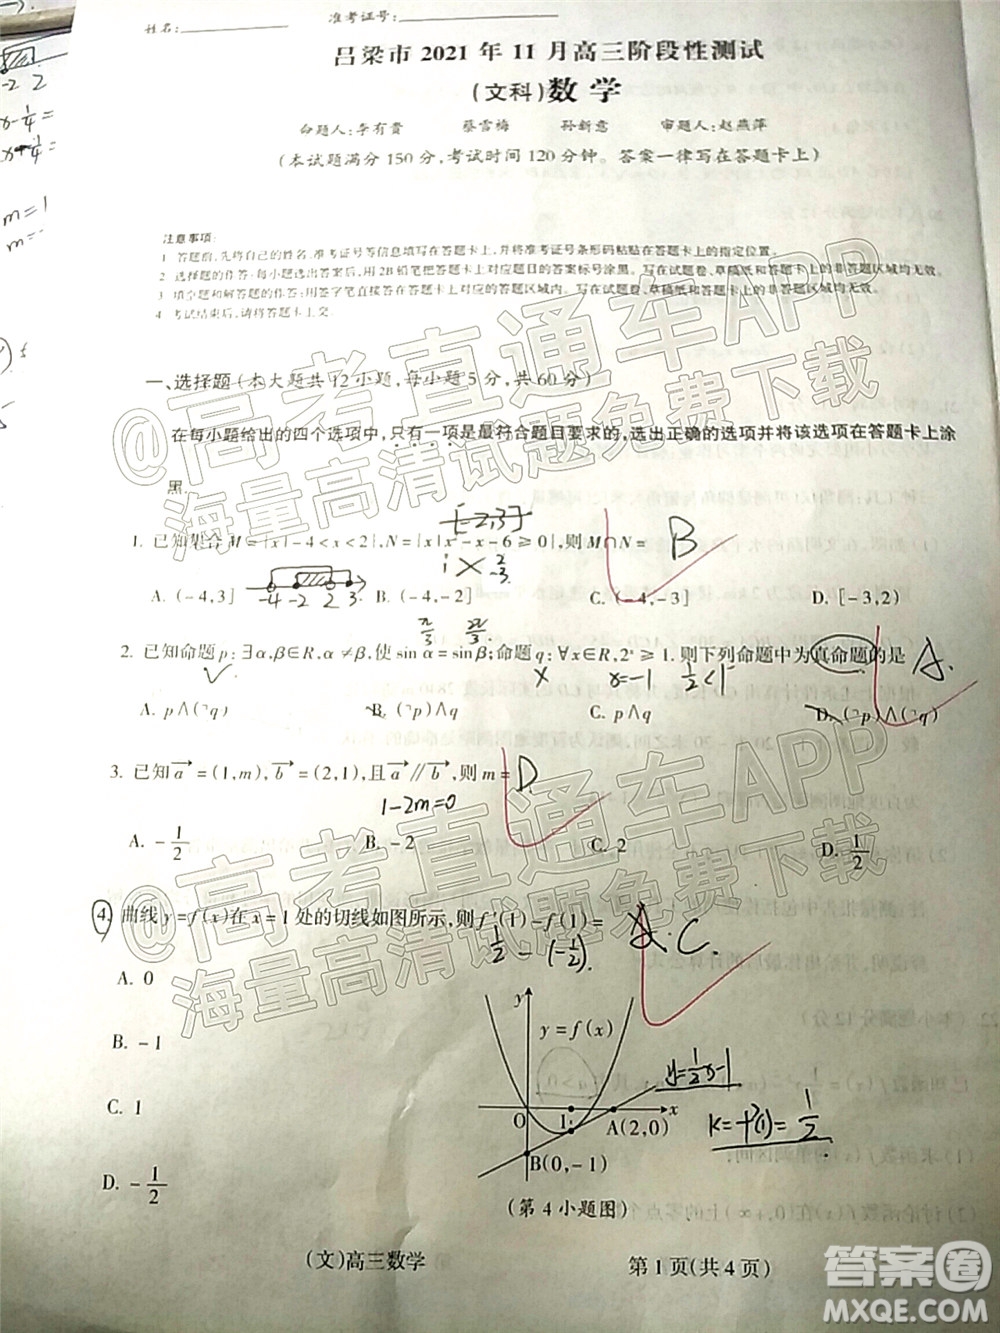 姓名:
准考证号:
吕梁市 2021 年 11 月高三阶段性测试
(文科)数学
命题人:李有贵 蔡雪梅 孙新意 审题人:赵燕萍
(本试题满分 150 分,考试时间 120 分钟。答案一律写在答题卡上)
注意事项:
1 答题前,先将自己的姓名、准考证号等信息填写在答题卡上,并将准考证号条形码粘贴在答题卡上的指定位置。
2 选择题的作答:每小题选出答案后,用 2B 铅笔把答题卡上对应题目的答案标号涂黑。写在试题卷、草稿纸和答题卡上的非答题区域均无效。
3 填空题和解答题的作答:用签字笔直接答在答题卡上对应的答题区域内。写在试题卷、草稿纸和答题卡上的非答题区域均无效。
4 考试结束后,请将答题卡上交
一、选择题(本大题共 12 小题,每小题 5 分,共 60 分)
在每小题给出的四个选项中,只有一项是最符合题目要求的,选出正确的选项并将该选项在答题卡上涂
黑
[-2,3]
1. 已知集合 M={x|-4<x<2},N={x|x²-x-6≥0},则 M∩N= B
A. (-4,3] B. (-4,-2] C. (-4,-3] D. [-3,2)
-4 -2 2 3
π/3 2π/3
2. 已知命题 p:∃α,β∈R,α≠β,使 sin α=sinβ;命题 q:∀x∈R,2ˣ≥1.则下列命题中为真命题的是 A.
x=-1 1/2<1
A. p∧(¬q) B. (¬p)∧q C. p∧q D. (¬p)∧(¬q)
3. 已知 a→=(1,m),b→=(2,1),且 a→∥b→,则 m= D
1-2m=0
A. -1/2 B. -2 C. 2 D. 1/2
4. 曲线 y=f(x)在 x=1 处的切线如图所示,则 f'(1)-f(1)= C.
1/2-(-1/2).
A. 0
B. -1
C. 1
D. -1/2
y
y=f(x)
y=1/2x-1
O 1 A(2,0) x
k=f'(1)=1/2
B(0,-1)
(第 4 小题图)
(文)高三数学 第 1 页(共 4 页)
@高考直通车APP
海量高清试题免费下载
@高考直通车APP
海量高清试题免费下载
答案圈
MXQE.COM